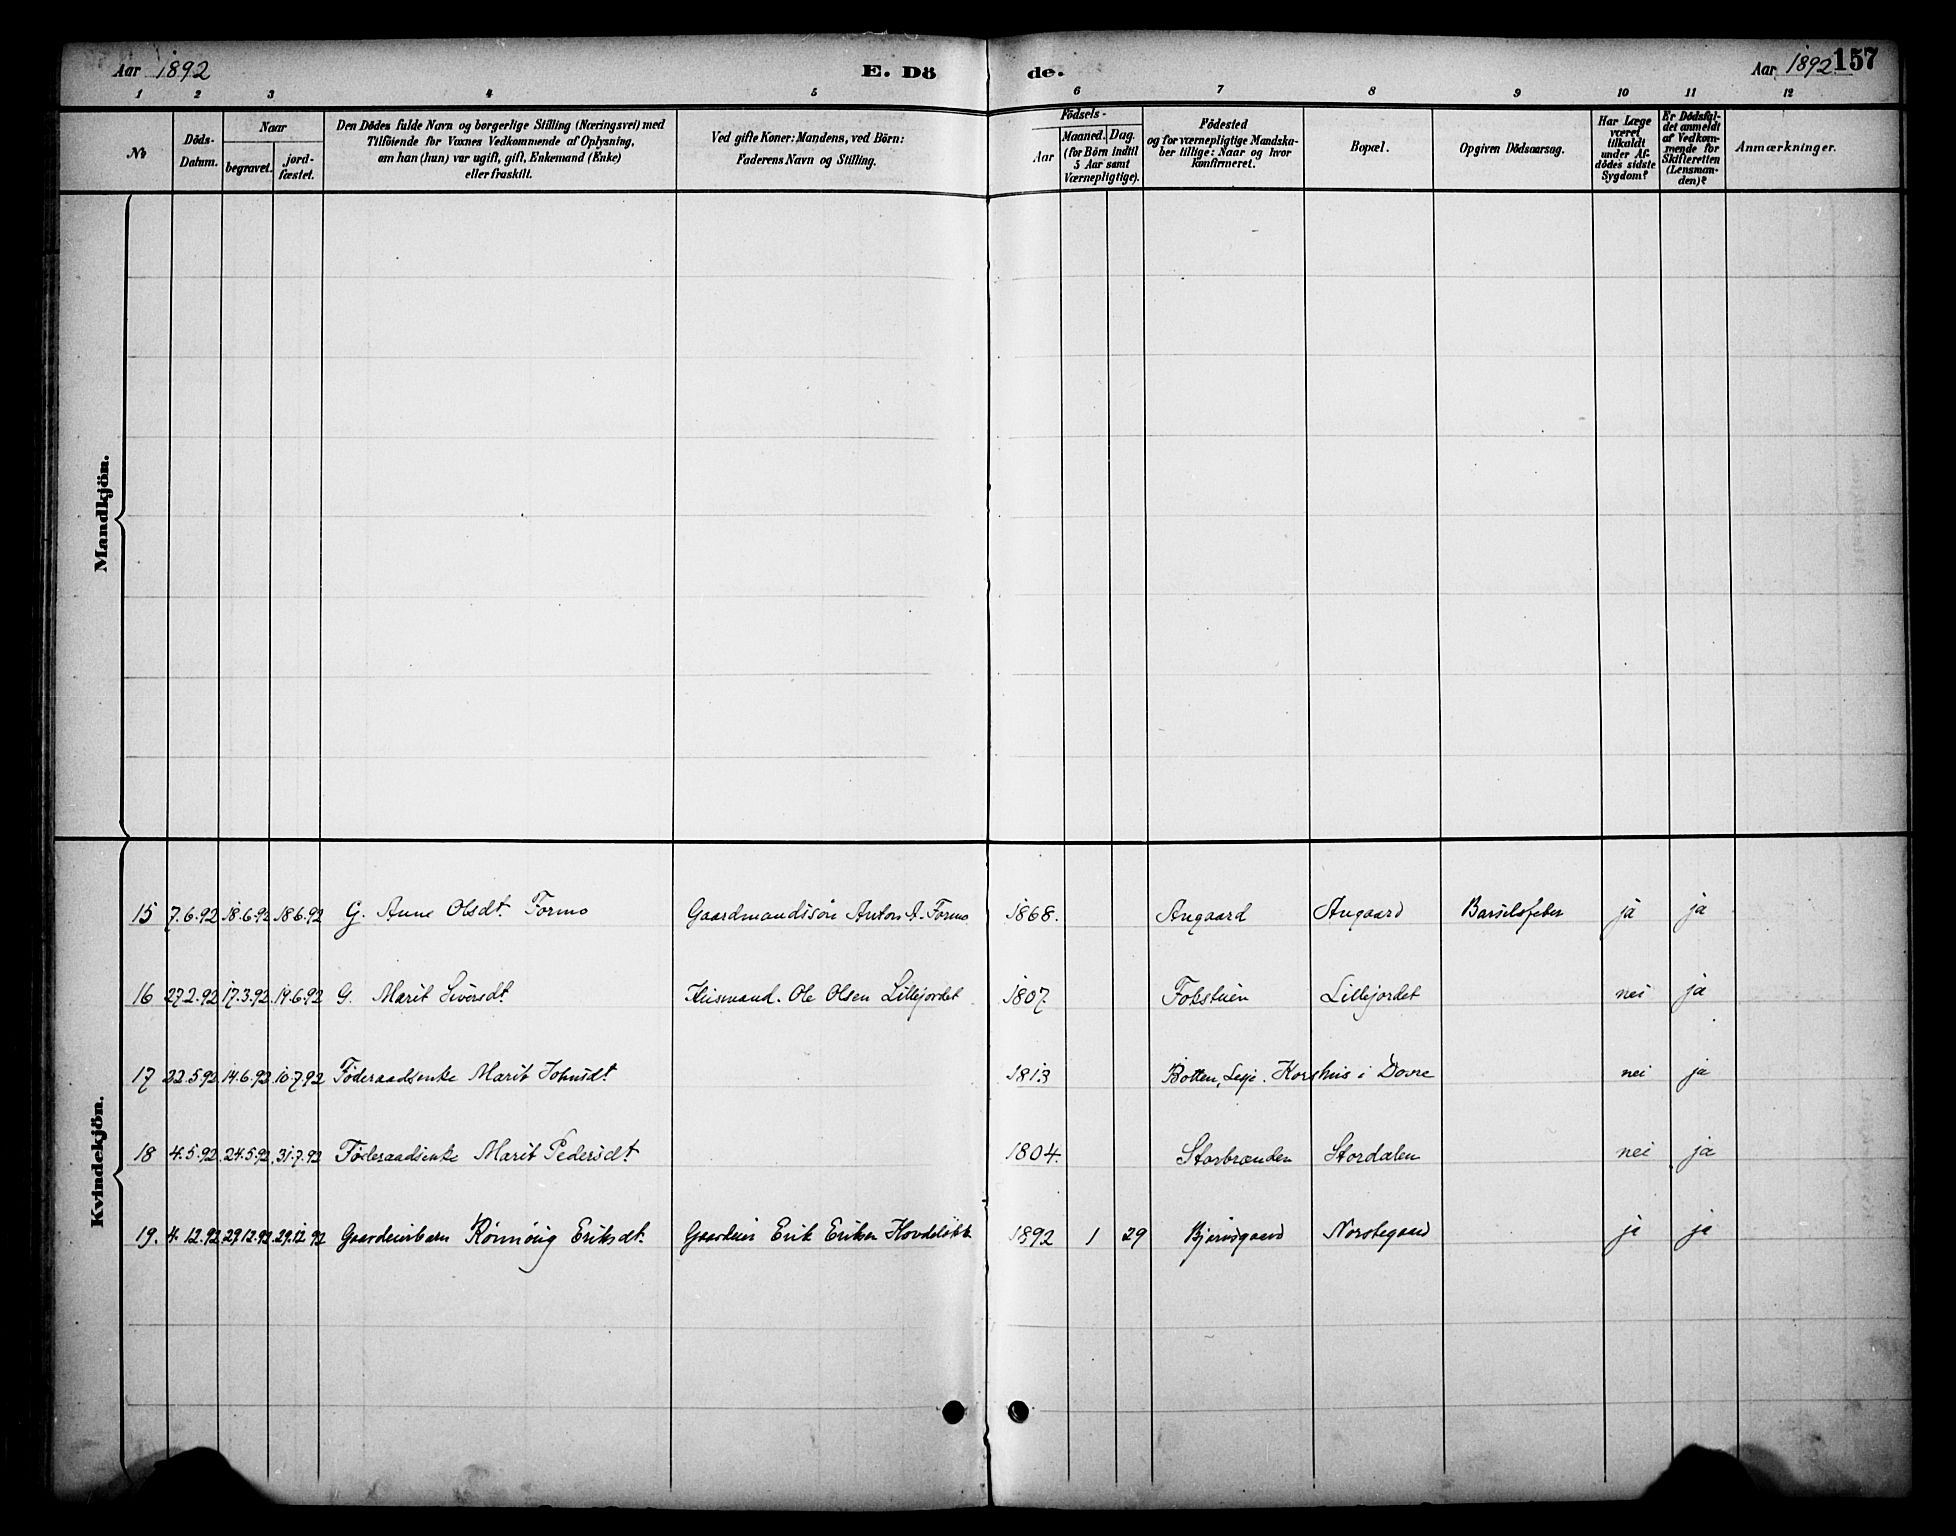 Aar 1892 E. Dö de. Aar 1892 157
1 2 3 4 5 6 7 8 9 10 11 12
№
Döds-
Datum.
Naar
begravet.
jord-
fæstet.
Den Dödes fulde Navn og borgerlige Stilling (Næringsvei) med
Tilföiende for Voxnes Vedkommende af Oplysning,
om han (hun) var ugift, gift, Enkemand (Enke)
eller fraskilt.
Ved gifte Koner: Mandens, ved Börn:
Faderens Navn og Stilling.
Födsels-
Aar
Maaned. Dag.
(for Börn indtil
5 Aar samt
Værnepligtige).
Födested
og for værnepligtige Mandska-
ber tillige: Naar og hvor
konfirmeret.
Bopæl.
Opgiven Dödsaarsag.
Har Læge
været
tilkaldt
under Af-
dödes sidste
Sygdom?
Er Dödsfal-
det anmeldt
af Vedkom-
mende for
Skifteretten
(Lensman-
den)?
Anmærkninger.
Mandkjön.
Kvindekjön.
15 7.6.92 18.6.92 18.6.92 G. Anne Olsdt. Formo Gaardmandssön Anton A. Formo 1868. Angaard Angaard Barselsfeber ja ja
16 27.2.92 17.3.92 19.6.92 G. Marit Siversdt Husmand. Ole Olsen Lillejordet 1807. Fokstuen Lillejordet nei ja
17 22.5.92 14.6.92 10.7.92 Föderaadsenke Marit Johnsdt 1813 Botten, Lesje. Korshus i Dovre nei ja
18 4.5.92 24.5.92 31.7.92 Föderaadsenke Marit Pedersdt 1804. Storbrænden Stordalen nei ja
19. 4.12.92 29.12.92 29.12.92 Gaardeierbarn Rönnöug Eriksdt. Gaardeier Erik Eriksen 1892 1 29 Bjørnsgaard Norstegaard ja ja